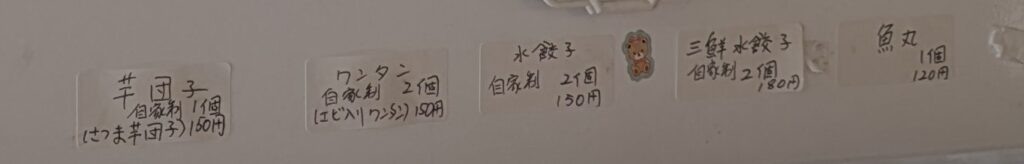 芋団子
自家制 1個
(さつま芋団子)150円
ワンタン
自家制 2個
(エビ入りワンタン)150円
水餃子
自家制 2個
150円
三鮮水餃子
自家制 2個
180円
魚丸
1個
120円